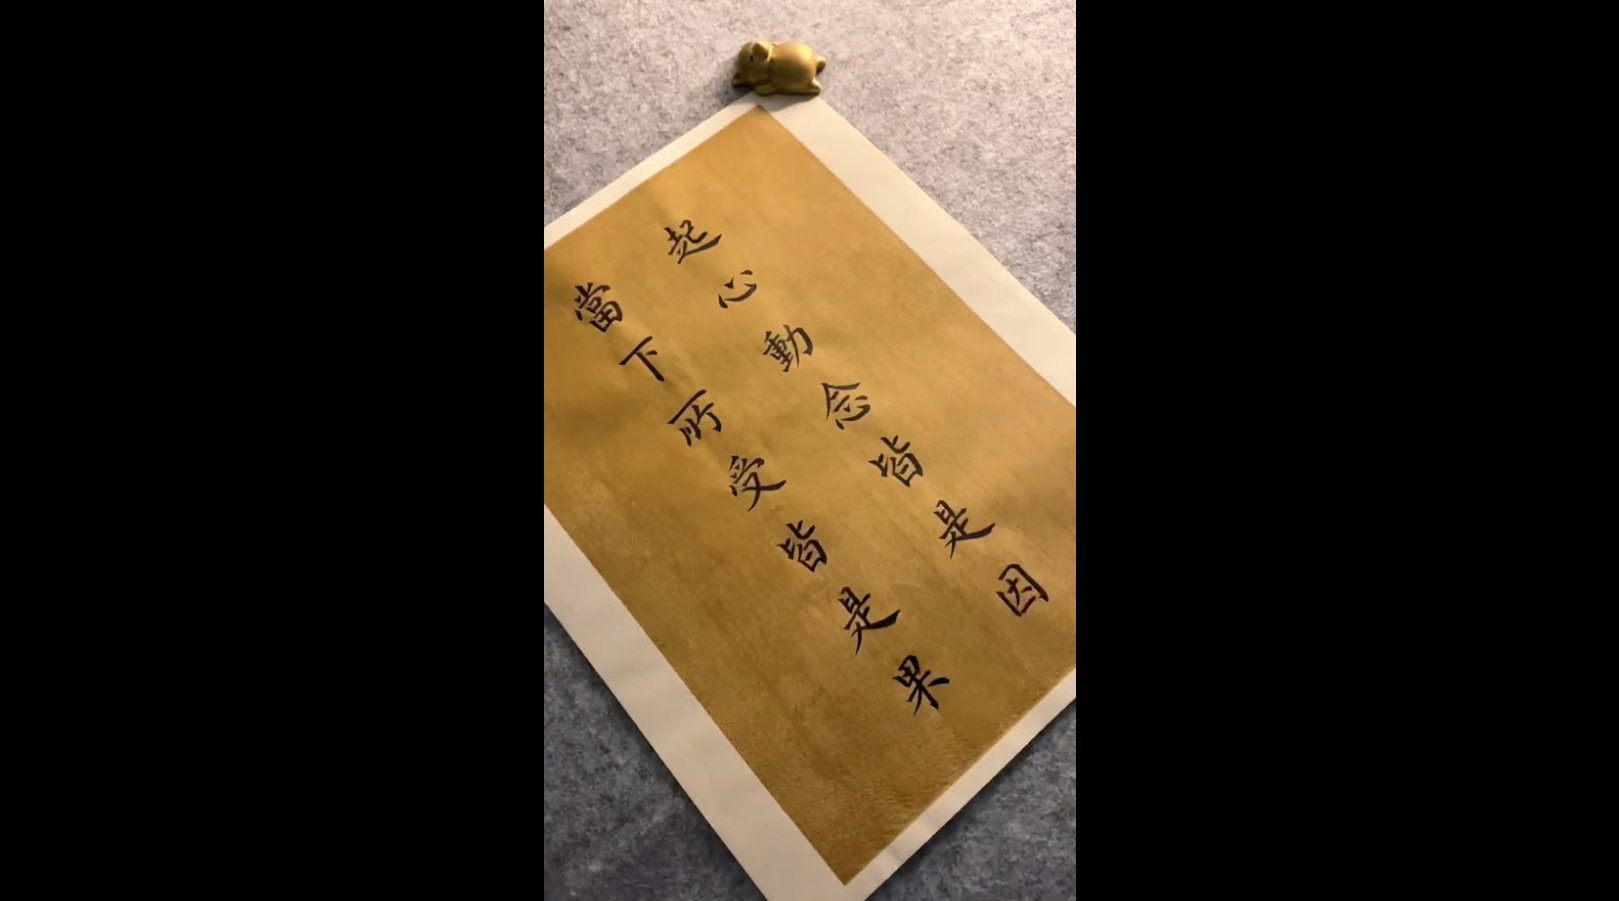 起心動念皆是因
當下所受皆是果